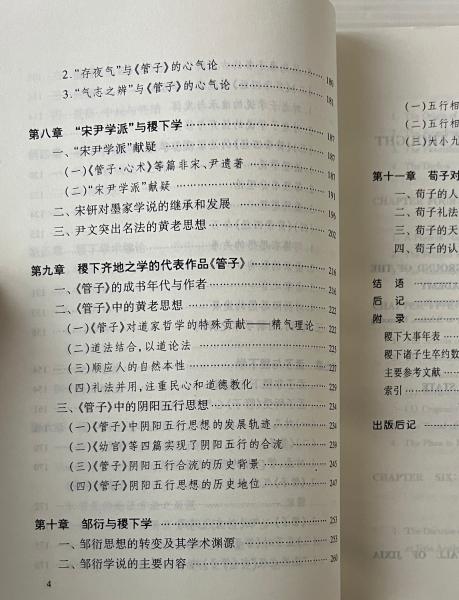 2.“存夜气”与《管子》的心气论 180
3.“气志之辨”与《管子》的心气论 181
第八章 “宋尹学派”与稷下学 187
一、“宋尹学派”献疑 187
(一)《管子·心术》等篇非宋、尹遗著
(二)“宋尹学派”献疑
二、宋钘对墨家学说的继承和发展 199
三、尹文突出名法的黄老思想 202
第九章 稷下齐地之学的代表作品《管子》 216
一、《管子》的成书年代与作者
二、《管子》中的黄老思想
(一)《管子》对道家哲学的特殊贡献——精气理论
(二)道法结合,以道论法 225
(三)顺应人的自然本性 227
(四)礼法并用,注重民心和道德教化 229
三、《管子》中的阴阳五行思想 234
(一)《管子》中阴阳五行思想的发展轨迹 234
(二)《幼官》等四篇实现了阴阳五行的合流
(三)《管子》阴阳五行合流的历史背景 245
(四)《管子》阴阳五行思想的历史地位 247
第十章 邹衍与稷下学 253
一、邹衍思想的转变及其学术渊源 253
二、邹衍学说的主要内容 260
4
(一)五行相
(二)五行相
(三)大小九
第十一章 荀子对
一、荀子的人
二、荀子礼法
三、荀子的天
四、荀子的认
结语
后记
附录
稷下大事年表
稷下诸子生卒约数
主要参考文献
索引
出版后记